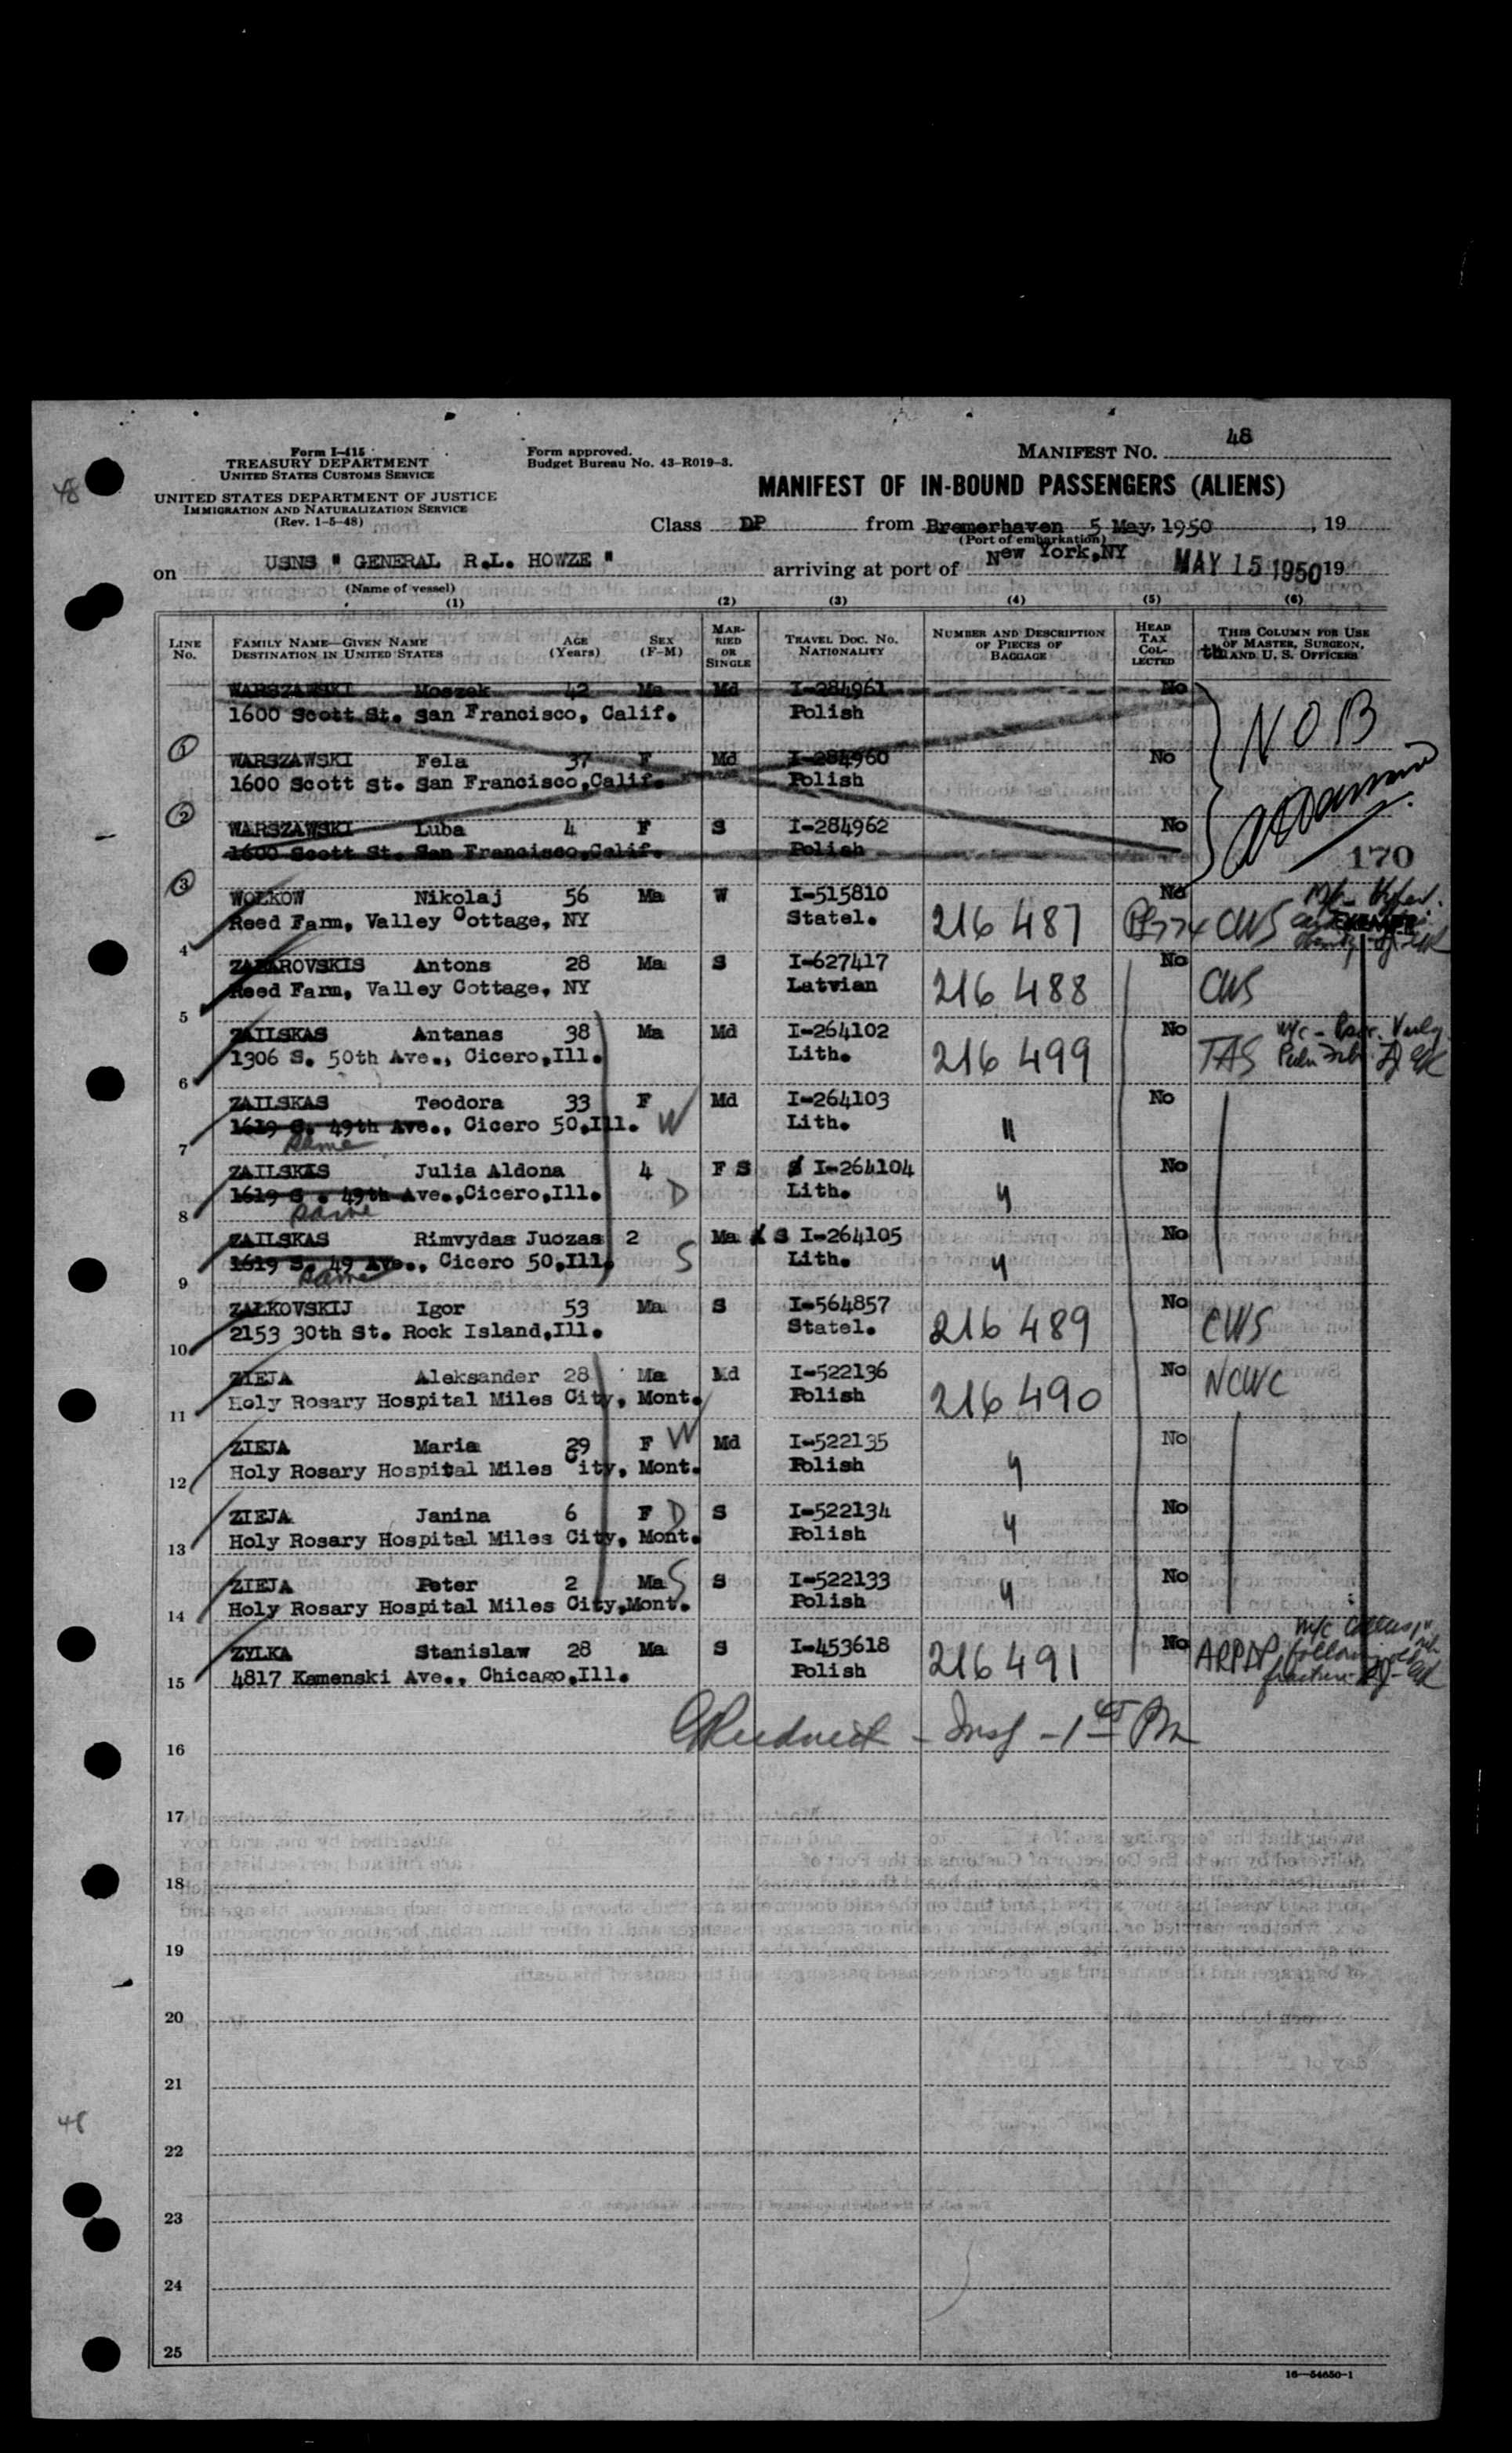 48
Form I-415
TREASURY DEPARTMENT
UNITED STATES CUSTOMS SERVICE
UNITED STATES DEPARTMENT OF JUSTICE
IMMIGRATION AND NATURALIZATION SERVICE
(Rev. 1-5-48)
Form approved.
Budget Bureau No. 43-R019-3.
MANIFEST NO. 48
MANIFEST OF IN-BOUND PASSENGERS (ALIENS)
Class DP from Bremerhaven 5 May, 1950, 19
(Port of embarkation)
on USNS " GENERAL R.L. HOWZE " arriving at port of New York,NY MAY 15 1950 19
(Name of vessel)
(1) (2) (3) (4) (5) (6)
LINE No. FAMILY NAME—GIVEN NAME DESTINATION IN UNITED STATES AGE (Years) SEX (F-M) MARRIED OR SINGLE TRAVEL DOC. NO. NATIONALITY NUMBER AND DESCRIPTION OF PIECES OF BAGGAGE HEAD TAX COLLECTED THIS COLUMN FOR USE OF MASTER, SURGEON, AND U. S. OFFICERS
WARSZAWSKI Moszek 42 Ma Md I-284961 No
1600 Scott St. San Francisco, Calif. Polish
NOB
1 WARSZAWSKI Fela 37 F Md I-284960 No
1600 Scott St. San Francisco,Calif. Polish
2 WARSZAWSKI Luba 4 F S I-284962 No
1600 Scott St. San Francisco,Calif. Polish
170
3 WOLKOW Nikolaj 56 Ma W I-515810 No
Reed Farm, Valley Cottage, NY Statel. 216 487 CWS
4 ZAHAROVSKIS Antons 28 Ma S I-627417 No
Reed Farm, Valley Cottage, NY Latvian 216 488 CWS
5 ZAILSKAS Antanas 38 Ma Md I-264102 No
1306 S. 50th Ave., Cicero,Ill. Lith. 216 499 TAS
6 ZAILSKAS Teodora 33 F W Md I-264103 No
1619 S. 49th Ave., Cicero 50,Ill. Lith. "
Same
7 ZAILSKIS Julia Aldona 4 F S I-264104 No
1619 S . 49th Ave.,Cicero,Ill. D Lith. "
Same
8 ZAILSKAS Rimvydas Juozas 2 Ma S I-264105 No
1619 S. 49 Ave., Cicero 50,Ill. S Lith. "
Same
9 ZALKOVSKIJ Igor 53 Ma S I-564857 No
2153 30th St. Rock Island,Ill. Statel. 216 489 CWS
10 ZIEJA Aleksander 28 Ma Md I-522136 No
Holy Rosary Hospital Miles City, Mont. Polish 216 490 NCWC
11 ZIEJA Maria 29 F W Md I-522135 No
Holy Rosary Hospital Miles City, Mont. Polish "
12 ZIEJA Janina 6 F D S I-522134 No
Holy Rosary Hospital Miles City, Mont. Polish "
13 ZIEJA Peter 2 Ma S S I-522133 No
Holy Rosary Hospital Miles City,Mont. Polish "
14 ZYLKA Stanislaw 28 Ma S I-453618 No
4817 Kamenski Ave., Chicago,Ill. Polish 216 491
15
16
17
18
19
20
21
22
23
24
25
48
16—54650-1